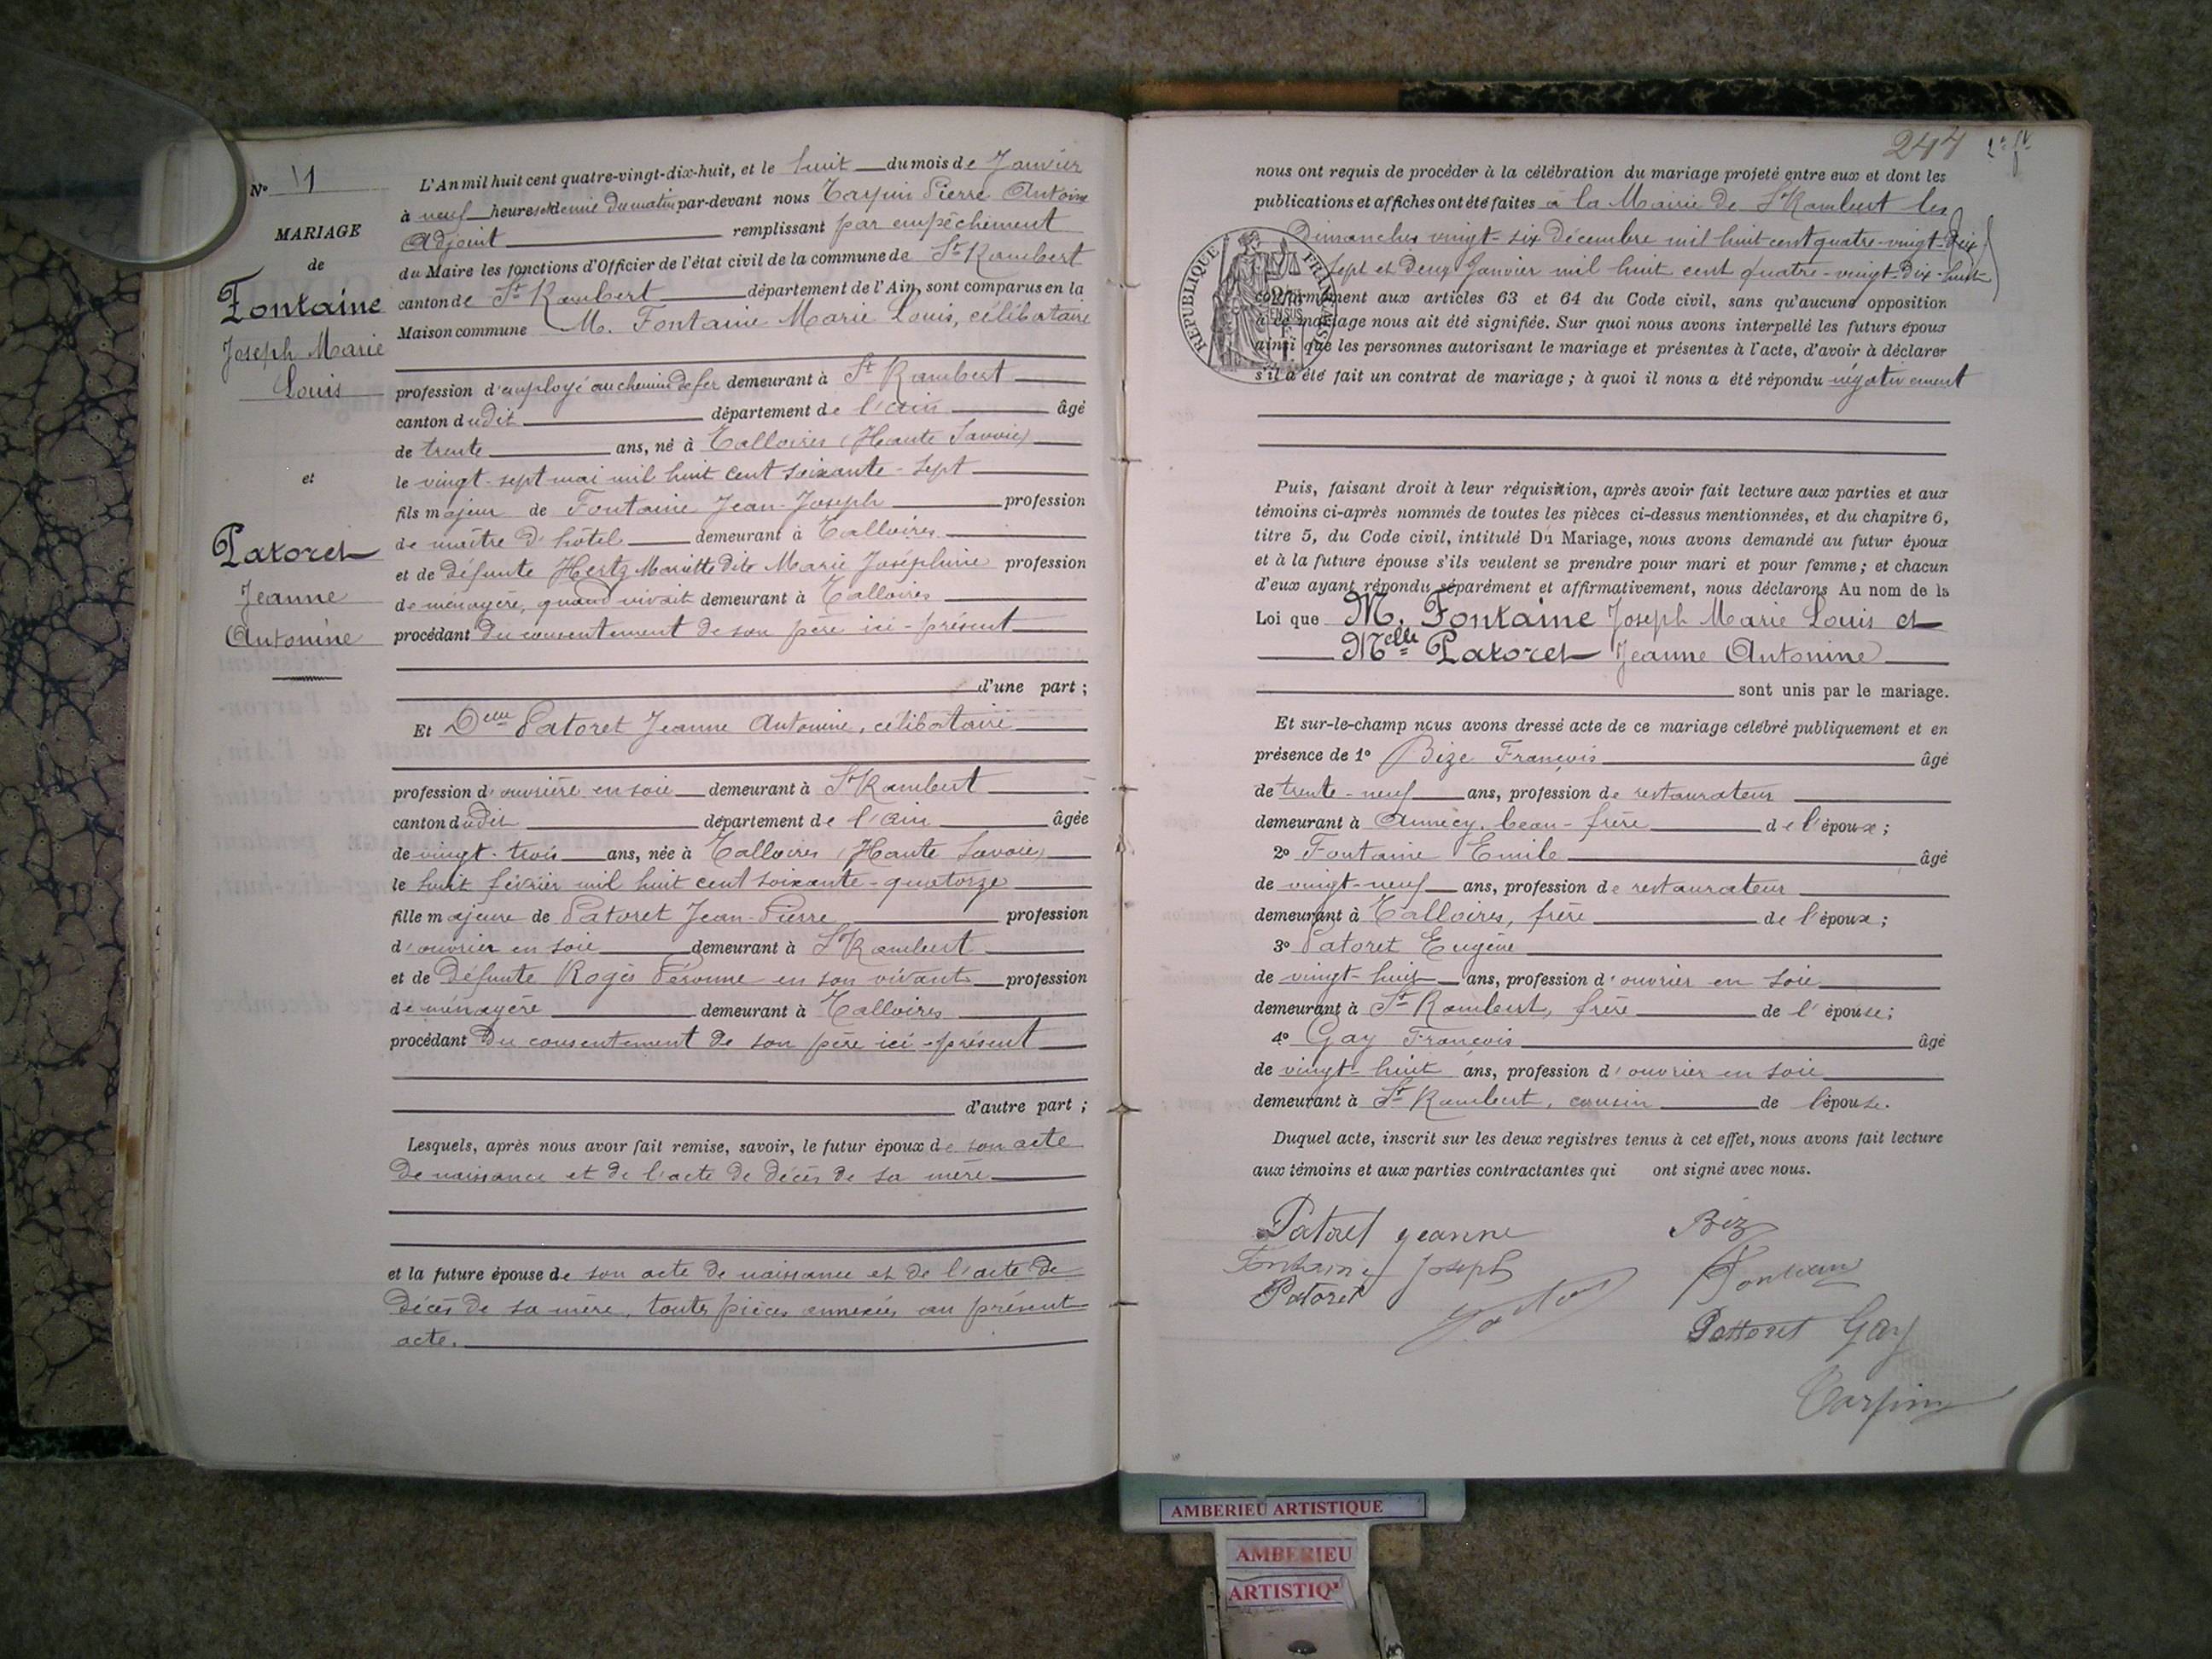 N° 1
MARIAGE
de
Fontaine
Joseph Marie
Louis
et
Patoret
Jeanne
Antonine
L'An mil huit cent quatre-vingt-dix-huit, et le huit du mois de Janvier
à neuf heures et demie du matin par-devant nous Tarpin Pierre Antoine
Adjoint remplissant par empêchement
du Maire les fonctions d'Officier de l'état civil de la commune de St Rambert
canton de St Rambert département de l'Ain, sont comparus en la
Maison commune M. Fontaine Marie Louis, célibataire
profession d'employé au chemin de fer demeurant à St Rambert
canton dudit département de l'ain âgé
de trente ans, né à Talloires (Haute Savoie)
le vingt-sept mai mil huit cent soixante-sept
fils majeur de Fontaine Jean-Joseph profession
de maître d'hôtel demeurant à Talloires
et de défunte Hertz Mariette dite Marie Joséphine profession
de ménagère, quand vivait demeurant à Talloires
procédant du consentement de son père ici-présent
d'une part ;
Et Delle Patoret Jeanne Antonine, célibataire
profession d'ouvrière en soie demeurant à St Rambert
canton dudit département de l'ain âgée
de vingt-trois ans, née à Talloires (Haute Savoie)
le huit février mil huit cent soixante-quatorze
fille majeure de Patoret Jean-Pierre profession
d'ouvrier en soie demeurant à St Rambert
et de défunte Rogès Péronne en son vivant profession
de ménagère demeurant à Talloires
procédant du consentement de son père ici-présent
d'autre part ;
Lesquels, après nous avoir fait remise, savoir, le futur époux de son acte
de naissance et de l'acte de décès de sa mère
et la future épouse de son acte de naissance et de l'acte de
décès de sa mère, toutes pièces annexées au présent
acte.
244
nous ont requis de procéder à la célébration du mariage projeté entre eux et dont les
publications et affiches ont été faites à la Mairie de St Rambert les
Dimanches vingt-six décembre mil huit cent quatre-vingt-dix
sept et deux Janvier mil huit cent quatre-vingt-dix-huit
conformément aux articles 63 et 64 du Code civil, sans qu'aucune opposition
à ce mariage nous ait été signifiée. Sur quoi nous avons interpellé les futurs époux
ainsi que les personnes autorisant le mariage et présentes à l'acte, d'avoir à déclarer
s'il a été fait un contrat de mariage ; à quoi il nous a été répondu négativement
RÉPUBLIQUE FRANÇAISE
Puis, faisant droit à leur réquisition, après avoir fait lecture aux parties et aux
témoins ci-après nommés de toutes les pièces ci-dessus mentionnées, et du chapitre 6,
titre 5, du Code civil, intitulé Du Mariage, nous avons demandé au futur époux
et à la future épouse s'ils veulent se prendre pour mari et pour femme ; et chacun
d'eux ayant répondu séparément et affirmativement, nous déclarons Au nom de la
Loi que M. Fontaine Joseph Marie Louis et
Melle Patoret Jeanne Antonine
sont unis par le mariage.
Et sur-le-champ nous avons dressé acte de ce mariage célébré publiquement et en
présence de 1° Bize François âgé
de trente-neuf ans, profession de restaurateur
demeurant à Annecy, beau-frère de l'époux ;
2° Fontaine Emile âgé
de vingt-neuf ans, profession de restaurateur
demeurant à Talloires, frère de l'époux ;
3° Patoret Eugène
de vingt-huit ans, profession d'ouvrier en soie
demeurant à St Rambert, frère de l'épouse ;
4° Gay François âgé
de vingt-huit ans, profession d'ouvrier en soie
demeurant à St Rambert, cousin de l'épouse.
Duquel acte, inscrit sur les deux registres tenus à cet effet, nous avons fait lecture
aux témoins et aux parties contractantes qui ont signé avec nous.
Patoret jeanne
Biz
Fontaine Joseph
Fontaine
Patoret
Pattoret Gay
Tarpin
AMBERIEU ARTISTIQUE
AMBERIEU
ARTISTIQ